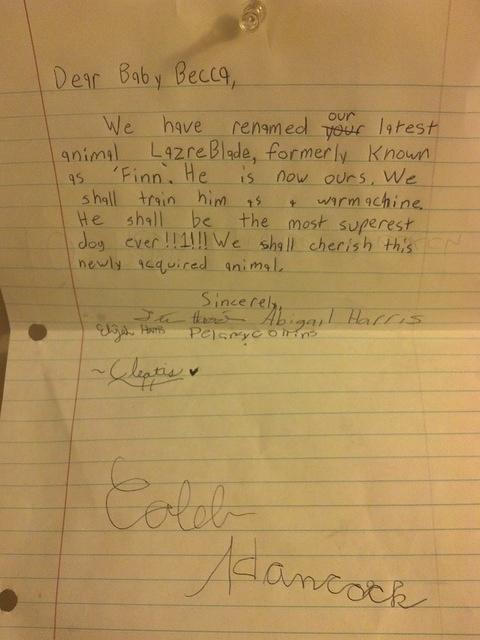 Dear Baby Becca,
We have renamed your our latest
animal LazreBlade, formerly known
as 'Finn'. He is now ours. We
shall train him as a warmachine.
He shall be the most superest
dog ever!!1!!! We shall cherish this
newly acquired animal.
Sincerely,
Abigail Harris
Elijah Harris
~Cleatis ♥
Caleb
Hancock